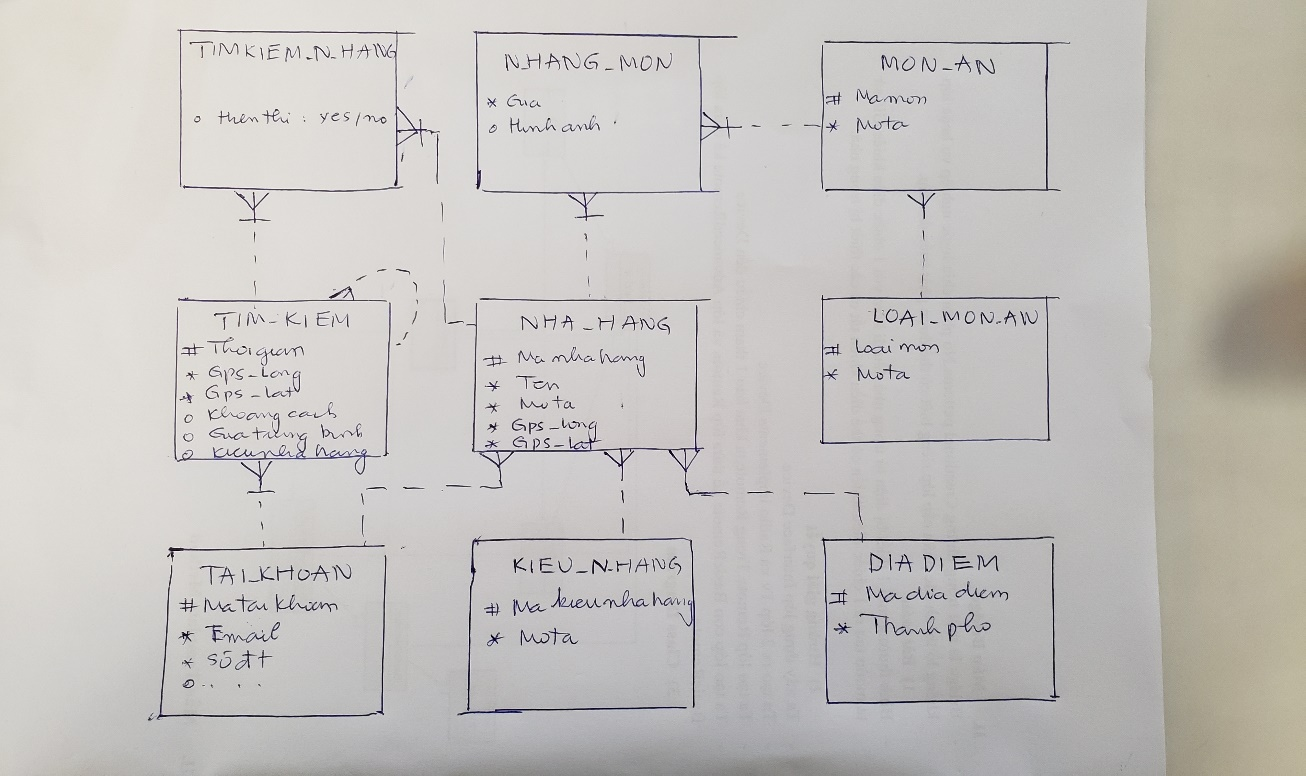 TIMKIEM_N_HANG
o hienthi : yes/no
N_HANG_MON
* Gia
o Hinhanh
MON_AN
# Mamon
* Mota
TIM_KIEM
# Thoigian
* Gps_Long
* Gps_lat
o Khoang cach
o Giatrung binh
o Kieunha hang
NHA_HANG
# Manhahang
* Ten
* Mota
* Gps_long
* Gps_lat
LOAI_MON_AN
# Loaimon
* Mota
TAI_KHOAN
# Mataikhoan
* Email
* Sốđt
o . . . .
KIEU_N_HANG
# Makieunhahang
* Mota
DIADIEM
# Madiadiem
* Thanhpho